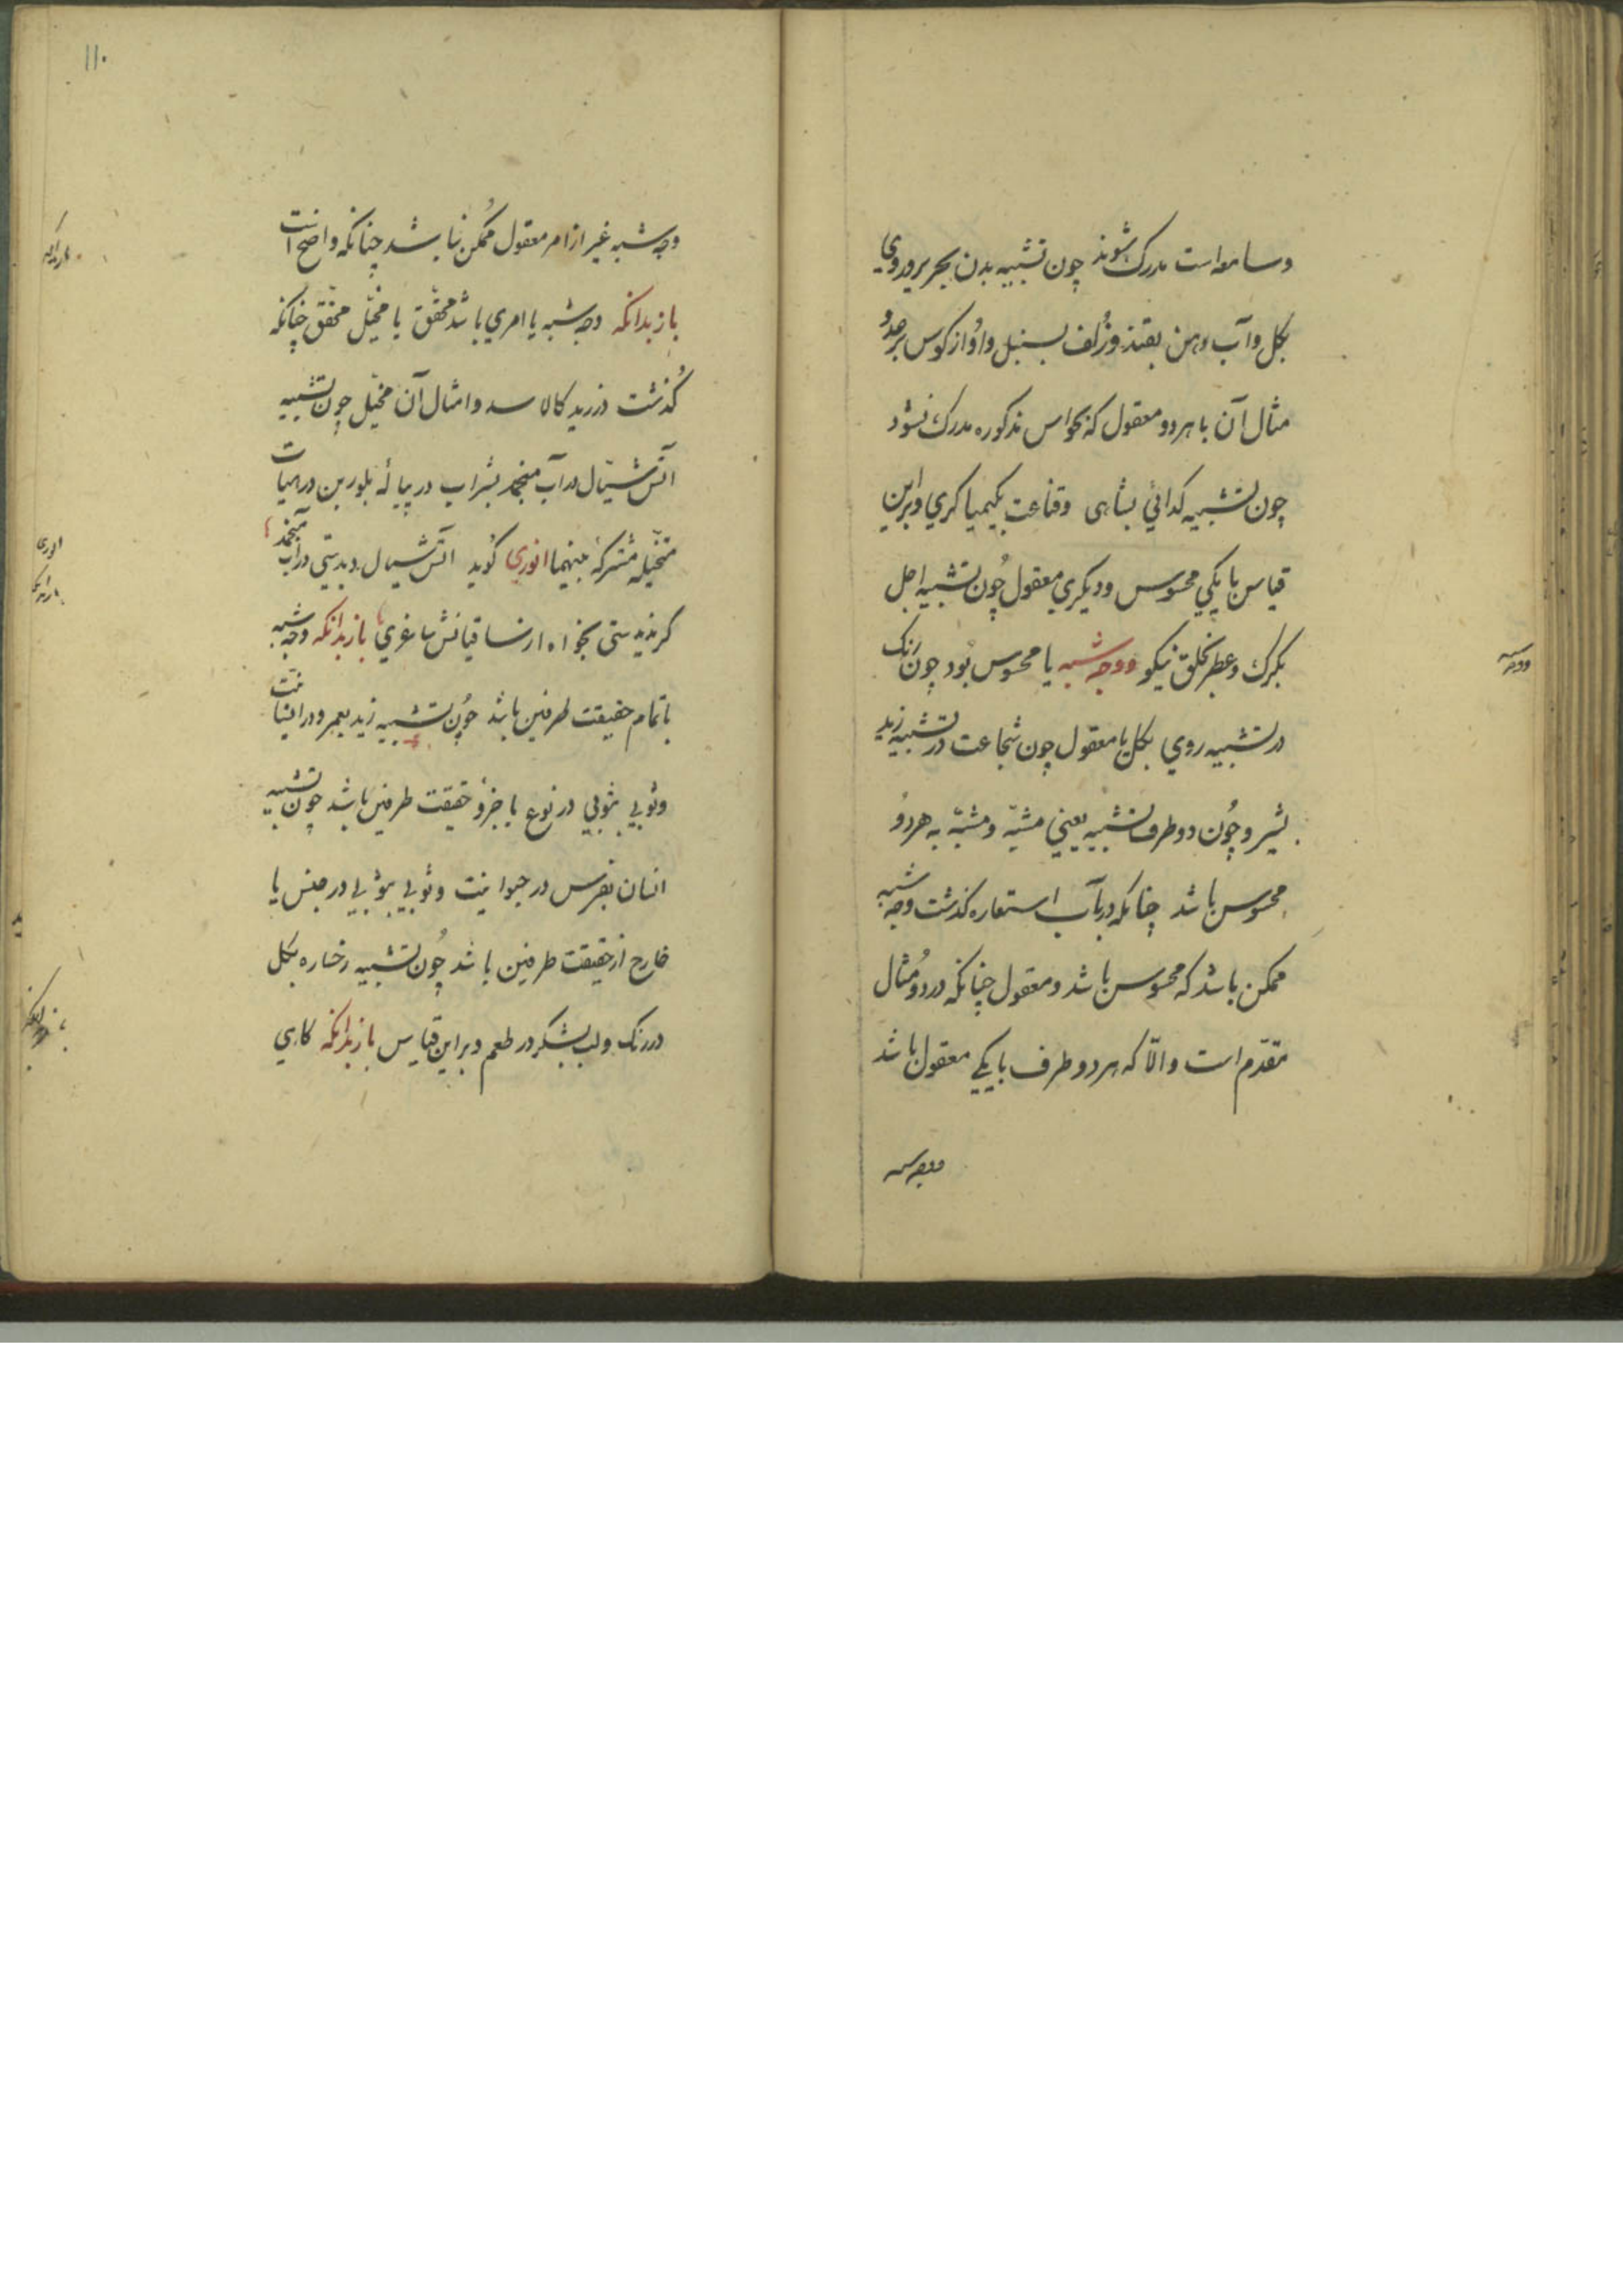 وسامعه است مدرک شوند چون تشبیه بدن بحریر و روی
بکل و آب دهن بقند و زُلف بسنبل و آواز کوس برعد و
مثال آن یا هر دو معقول که بحواس مذکوره مدرک نشود
چون تشبیه کدائی بشاهی وقناعت بکیمیا کری و براین
قیاس یا یکی محسوس و دیکری معقول چون تشبیه اجل
بکرک و عطر بخلق نیکو ووجه شبه یا محسوس بود چون رنک
در تشبیه روی بکل یا معقول چون شجاعت در تشبیه زید
بشیر و چون دو طرف تشبیه یعنی مشبّه و مشبّه به هر دو
محسوس باشد چنانکه در باب استعاره کذشت وجه شبه
ممکن باشد که محسوس باشد و معقول چنانکه در دو مثال
مقدّم است و الّا که هر دو طرف یا یکی معقول باشد
ووجه شبه
ووجه شبه
۱۱۰
وجه شبه غیر از امر معقول ممکن نباشد چنانکه واضح است
باز بدانکه وجه شبه یا امری باشد محقّق یا مخیّل محقّق چنانکه
کُذشت در زید کالاسد و امثال آن مخیّل چون تشبیه
آتش سیّال در آب منجمد بشراب در پیالهٔ بلورین در هیأت
متخیّله مشترکهٔ بینهما انوری کوید آتش سیال دیدستی در آب منجمد
کر ندیدستی بخواه از ساقیانش ساغری باز بدانکه وجه شبه
یا تمام حقیقت طرفین باشد چون تشبیه زید بعمرو در انسانیت
و ثوبی بثوبی در نوع یا جزؤ حقیقت طرفین باشد چون تشبیه
انسان بفرس در حیوانیت و ثوبی بثوبی در جنس یا
خارج از حقیقت طرفین باشد چون تشبیه رخساره بکل
در رنک و لب بشکر در طعم و براین قیاس باز بدانکه کاهی
باز بدانکه
انوری
باز بدانکه
باز بدانکه